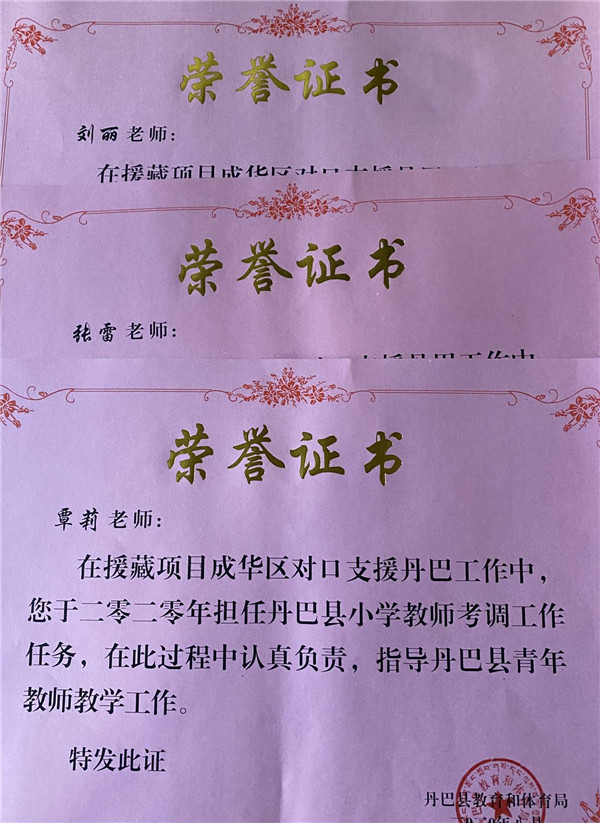 荣誉证书
刘丽老师：
在援藏项目成华区对口支援丹
荣誉证书
张雷老师：
支援丹巴工作中
荣誉证书
覃莉老师：
在援藏项目成华区对口支援丹巴工作中，
您于二零二零年担任丹巴县小学教师考调工作
任务，在此过程中认真负责，指导丹巴县青年
教师教学工作。
特发此证
丹巴县教育和体育局